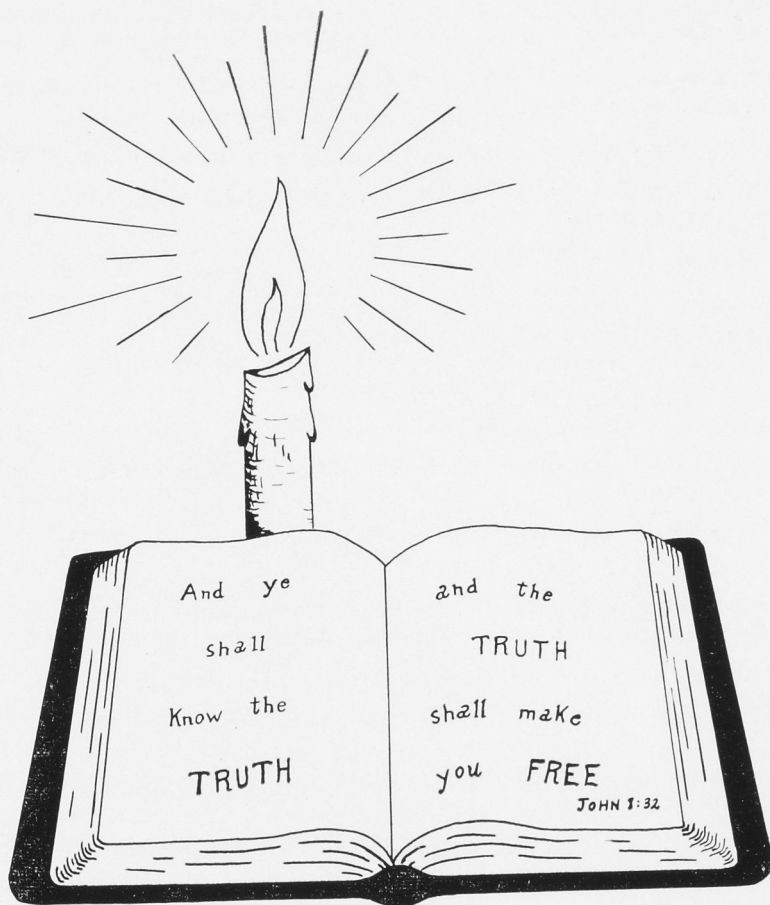 And ye
shall
Know the
TRUTH
and the
TRUTH
shall make
you FREE
JOHN 8:32